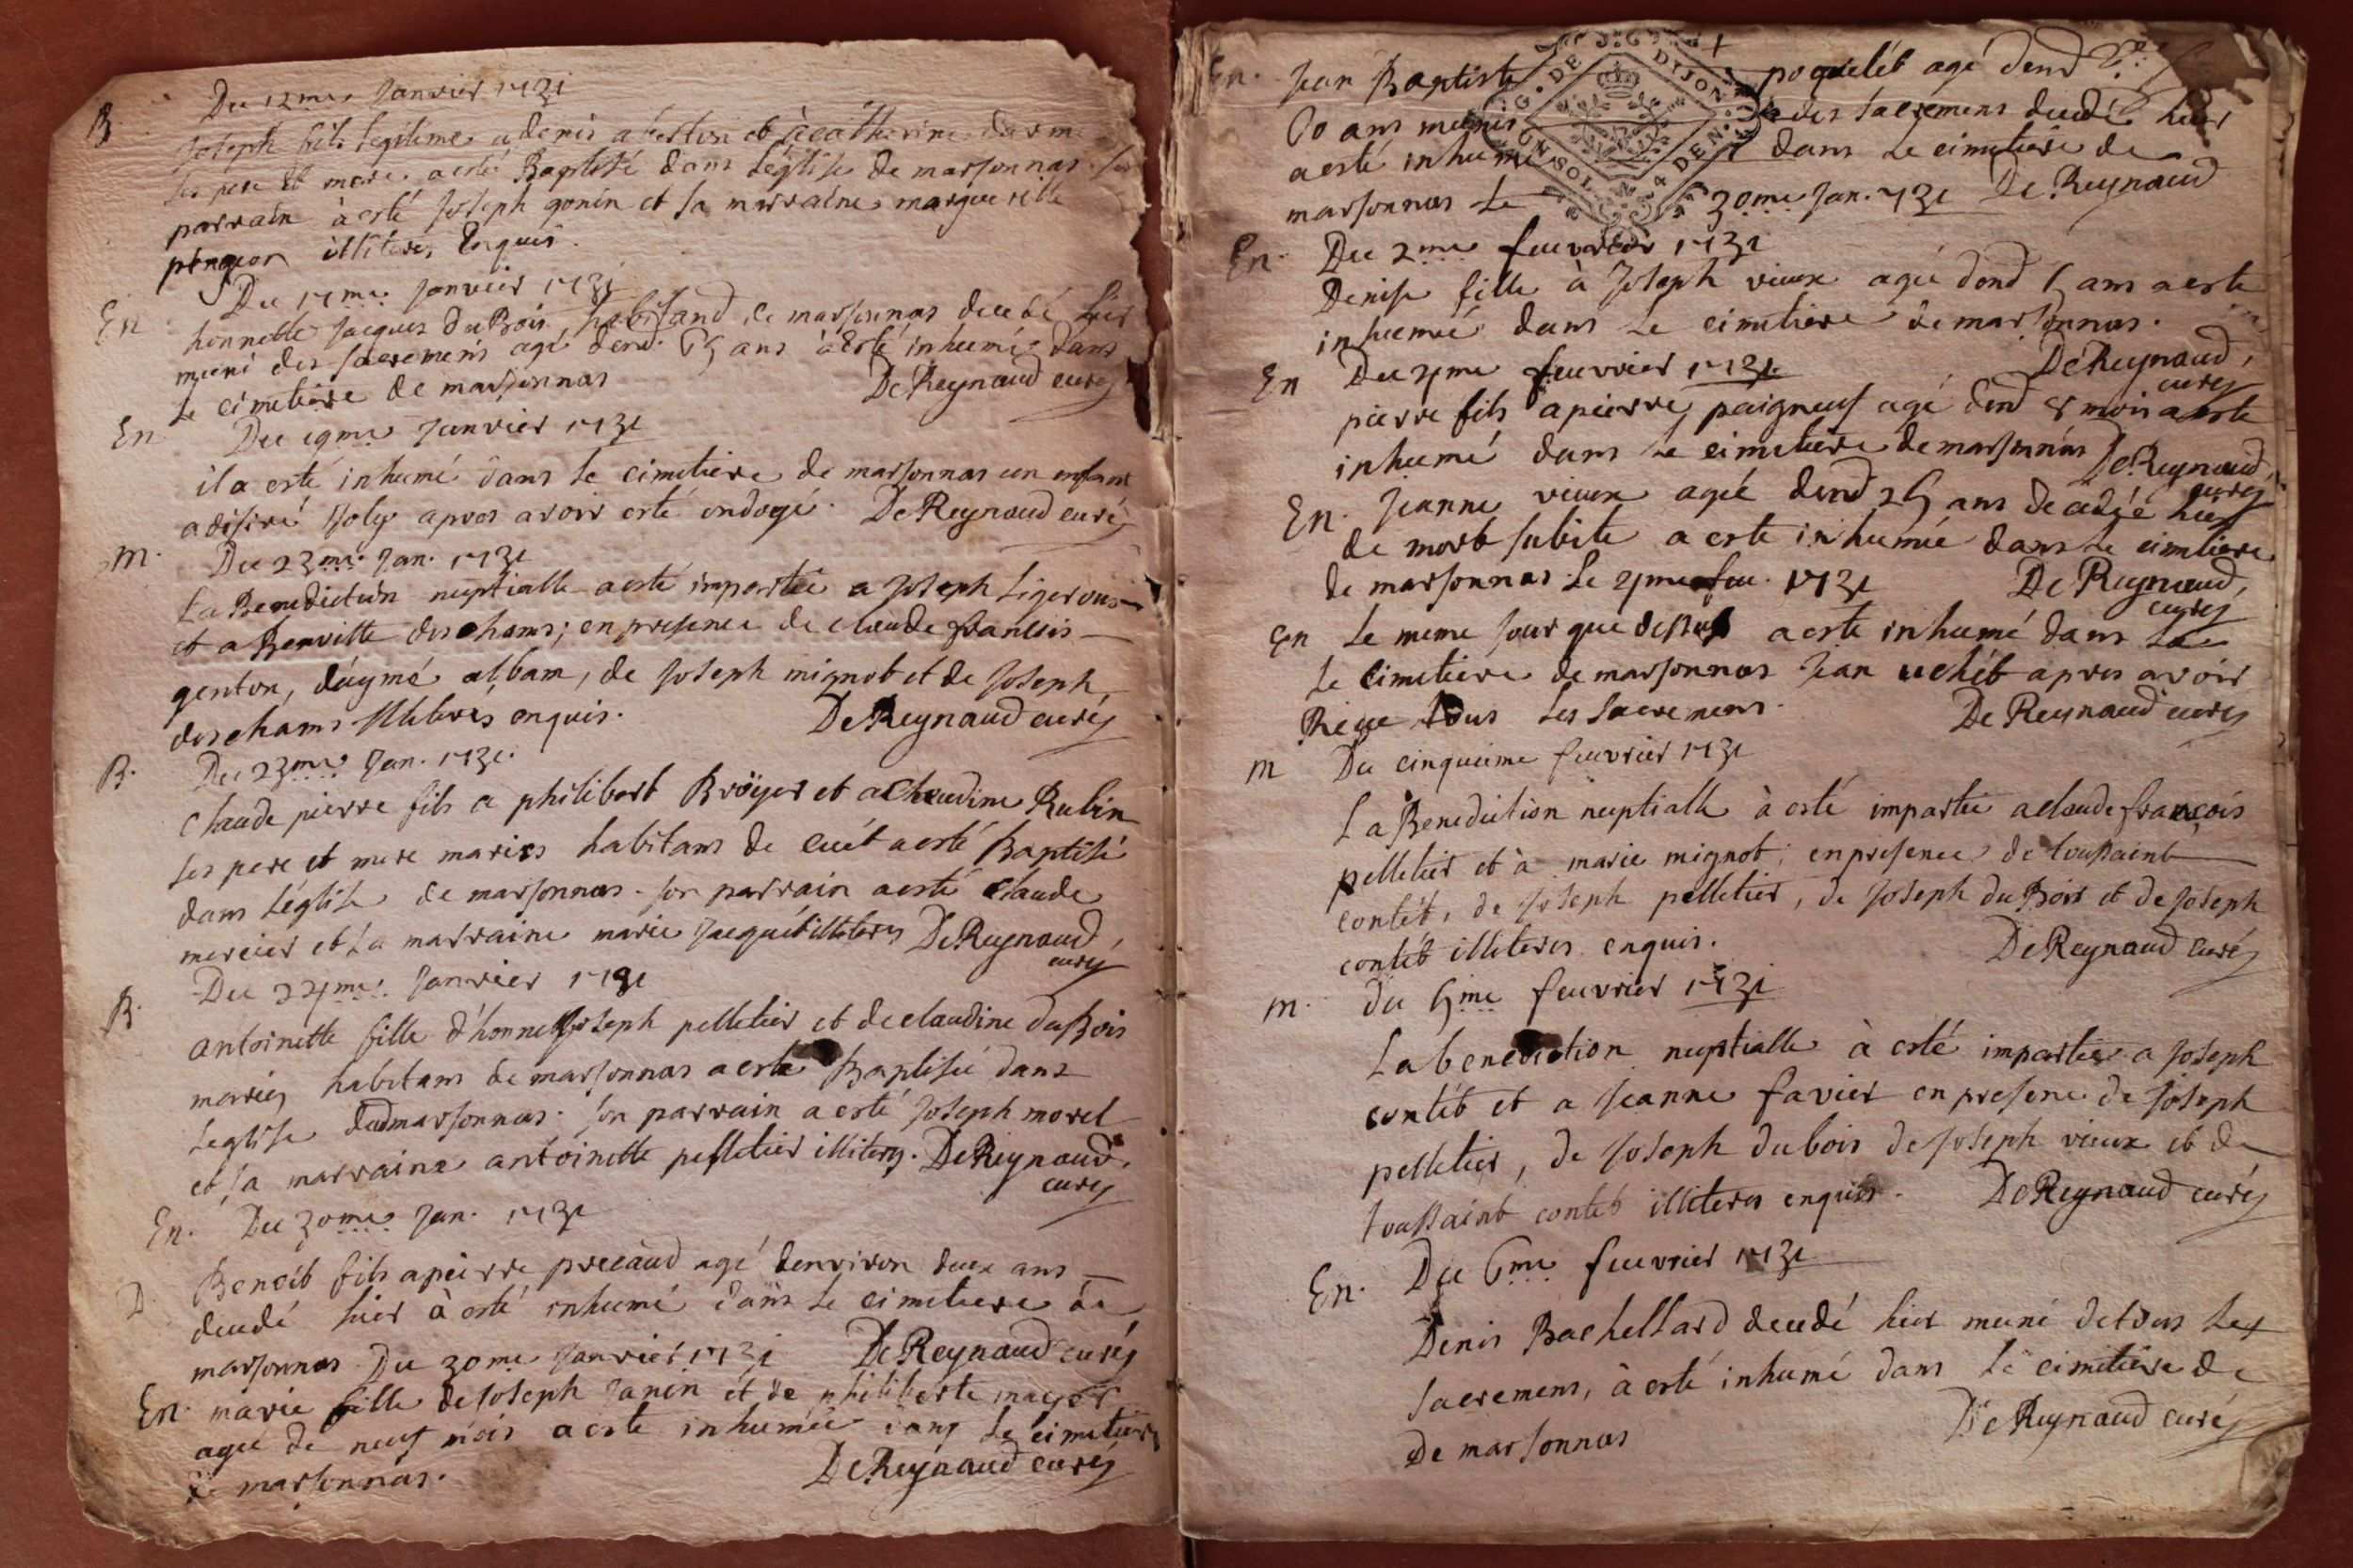 B Du 12me. Janvier 1731
Joseph fils legitime a denis et à catherine
ses pere et mere a esté Baptisé dans leglise de marsonnas. son
parrain à esté Joseph gonin et sa marraine marguerite
illiteres, enquis.
En Du 17me. janvier 1731
honnette Jacques DuBois habitand de marsonnas decedé hier
muni des sacremens agé denv. 65 ans à esté inhumé dans
le cimetiere de marsonnas DeReynaud curé
En Du 19me. Janvier 1731
il a esté inhumé dans le cimetiere de marsonnas un enfant
a desiré Joly apres avoir esté ondoyé. DeReynaud curé
m. Du 23me. Jan. 1731
La Benediction nuptialle a esté impartie a Joseph Ligerous
et a Benoitte deschams; en presence de claude francois
genton, d'aymé alban, de Joseph mignot et de Joseph
deschams illiteres enquis. DeReynaud curé
B. Du 23me. Jan. 1731.
Claude pierre fils a philibert Bröyer et a Claudine Rubin
ses pere et mere mariés habitans de cuét a esté Baptisé
dans l'église de marsonnas. son parrain a esté Claude
mercier et la marraine marie Jacquét illiteres DeReynaud,
curé
B. Du 24me. Janvier 1731
antoinette fille d'honnette Joseph pelletier et de claudine duBois
mariés habitans de marsonnas a esté Baptisée dans
leglise dud marsonnas. son parrain a esté Joseph morel
et sa marraine antoinette pelletier illiteres. DeReynaud,
curé
En. Du 30me. Jan. 1731
D. Benoit fils a pierre precaud agé denviron deux ans
decedé hier à esté inhumé dans le cimetiere de
marsonnas. Du 30me Janvier 1731 DeReynaud curé
En. marie fille de Joseph Janin et de philiberte mayet
agée de neuf mois a esté inhumée dans le cimetiere
de marsonnas. DeReynaud curé
En. Jean Baptiste poquelét agé denv
60 ans munis des sacremens decedé hier
a esté inhumé dans le cimetiere de
marsonnas le 30me Jan. 1731 DeReynaud
G. DE DIJON
CON SOL N. 4 DEN.
En. Du 2me feuvrier 1731
Denise fille à Joseph vieux agée dend 5 ans a esté
inhumée dans le cimetiere de marsonnas.
DeReynaud,
curé
En Du 4me feuvrier 1731.
pierre fils a pierre paigneuf agé dend 8 mois a esté
inhumé dans le cimetiere de marsonnas DeReynaud,
curé
En. Jeanne vieux agée dend 25 ans decedée hier
de mort subite a esté inhumée dans le cimetiere
de marsonnas le 4me feu. 1731 DeReynaud,
curé
En le meme jour que dessus a esté inhumé dans le
le cimetiere de marsonnas Jean uchét apres avoir
Receu tous les sacremens. DeReynaud curé
m Du cinquieme feuvrier 1731
La Benediction nuptialle à esté impartie a claude françois
pelletier et à marie mignot; en presence de toussaint
contét, de Joseph pelletier, de Joseph duBois et de Joseph
contét illiteres enquis. DeReynaud curé
m. du 5me feuvrier 1731
La benediction nuptialle à esté impartie a Joseph
contét et a Jeanne favier en presence de Joseph
pelletier, de Joseph dubois de Joseph vieux et de
toussaint contét illiteres enquis. DeReynaud curé
En. Du 6me. feuvrier 1731
Denis Bachellard decedé hier muni de tous les
sacremens, à esté inhumé dans le cimetiere de
de marsonnas DeReynaud curé